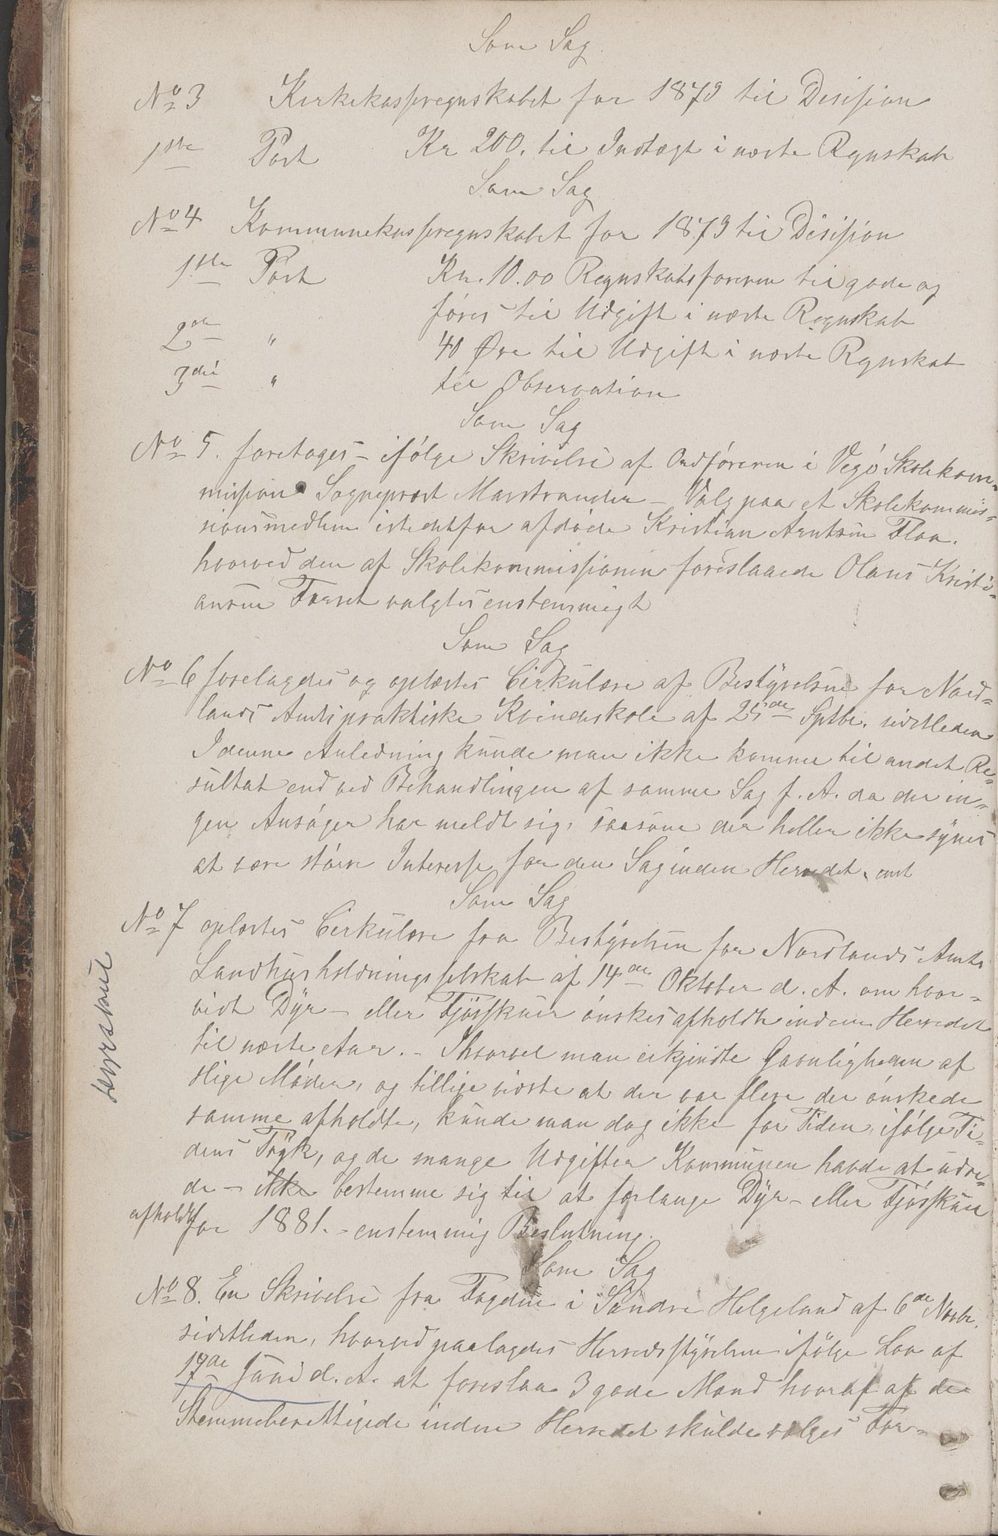 Som Sag
No 3 Kirkekasseregnskabet for 1879 til Desisjon
1ste Post Kr 200. til Indtægt i næste Regnskab
Som Sag
No 4 Kommunekasseregnskabet for 1879 til Disisjon
1ste Post Kr. 10.00 Regnskabsføreren tilgode og
føres til Udgift i næste Regnskab
2den " 40 Øre til Udgift i næste Regnskab
3die " til Observation
Som Sag
No 5. foretoges - ifølge Skrivelse af Ordføreren i Vegø Skolekom-
mission Sogneprest Marstrander - Valg paa et Skolekommis-
sionsmedlem istedetfor afdøde Kristian Arntsen Floa.
hvorved den af Skolekommissionen foreslaaede Olaus Kristi-
ansen valgtes enstemmigt
Som Sag
No 6 forelagdes og oplæstes Cirkulære af Bestyrelsen for Nord-
lands Amts praktiske Kvindeskole af 25de Septbr. sidstleden
I denne Anledning kunde man ikke komme til andet Re-
sultat end ved Behandlingen af samme Sag f. A. da der in-
gen Ansøger har meldt sig, saasom der heller ikke synes
at være større Interesse for den Sag inden Herredet. enst
Som Sag
No 7 oplæstes Cirkulære fra Bestyrelsen for Nordlands Amts
Landhusholdningsselskab af 14de Oktober d. A. om hvor-
vidt Dyr- eller Fjøsskuer ønskes afholdte inden Herredet
til næste Aar. - Ihvorvel man erkjendte Gavnligheden af
slige Møder, og tillige vidste at der var flere der ønskede
samme afholdte, kunde man dog ikke for Tiden, ifølge Ti-
dens Tryk, og de mange Udgifter Kommunen havde at udre-
de - ikke bestemme sig til at forlange Dyr- eller Fjøsskuer
afholdt for 1881. - enstemmig Beslutning.
Som Sag
No 8. En Skrivelse fra Fogden i Søndre Helgeland af 6de Novbr.
sidstleden, hvorved paalagdes Herredsstyrelsen ifølge Lov af
17de Juni d. A. at foreslaa 3 gode Mænd hvoraf af de
Stemmeberettigede inden Herredet skulde vælges For-